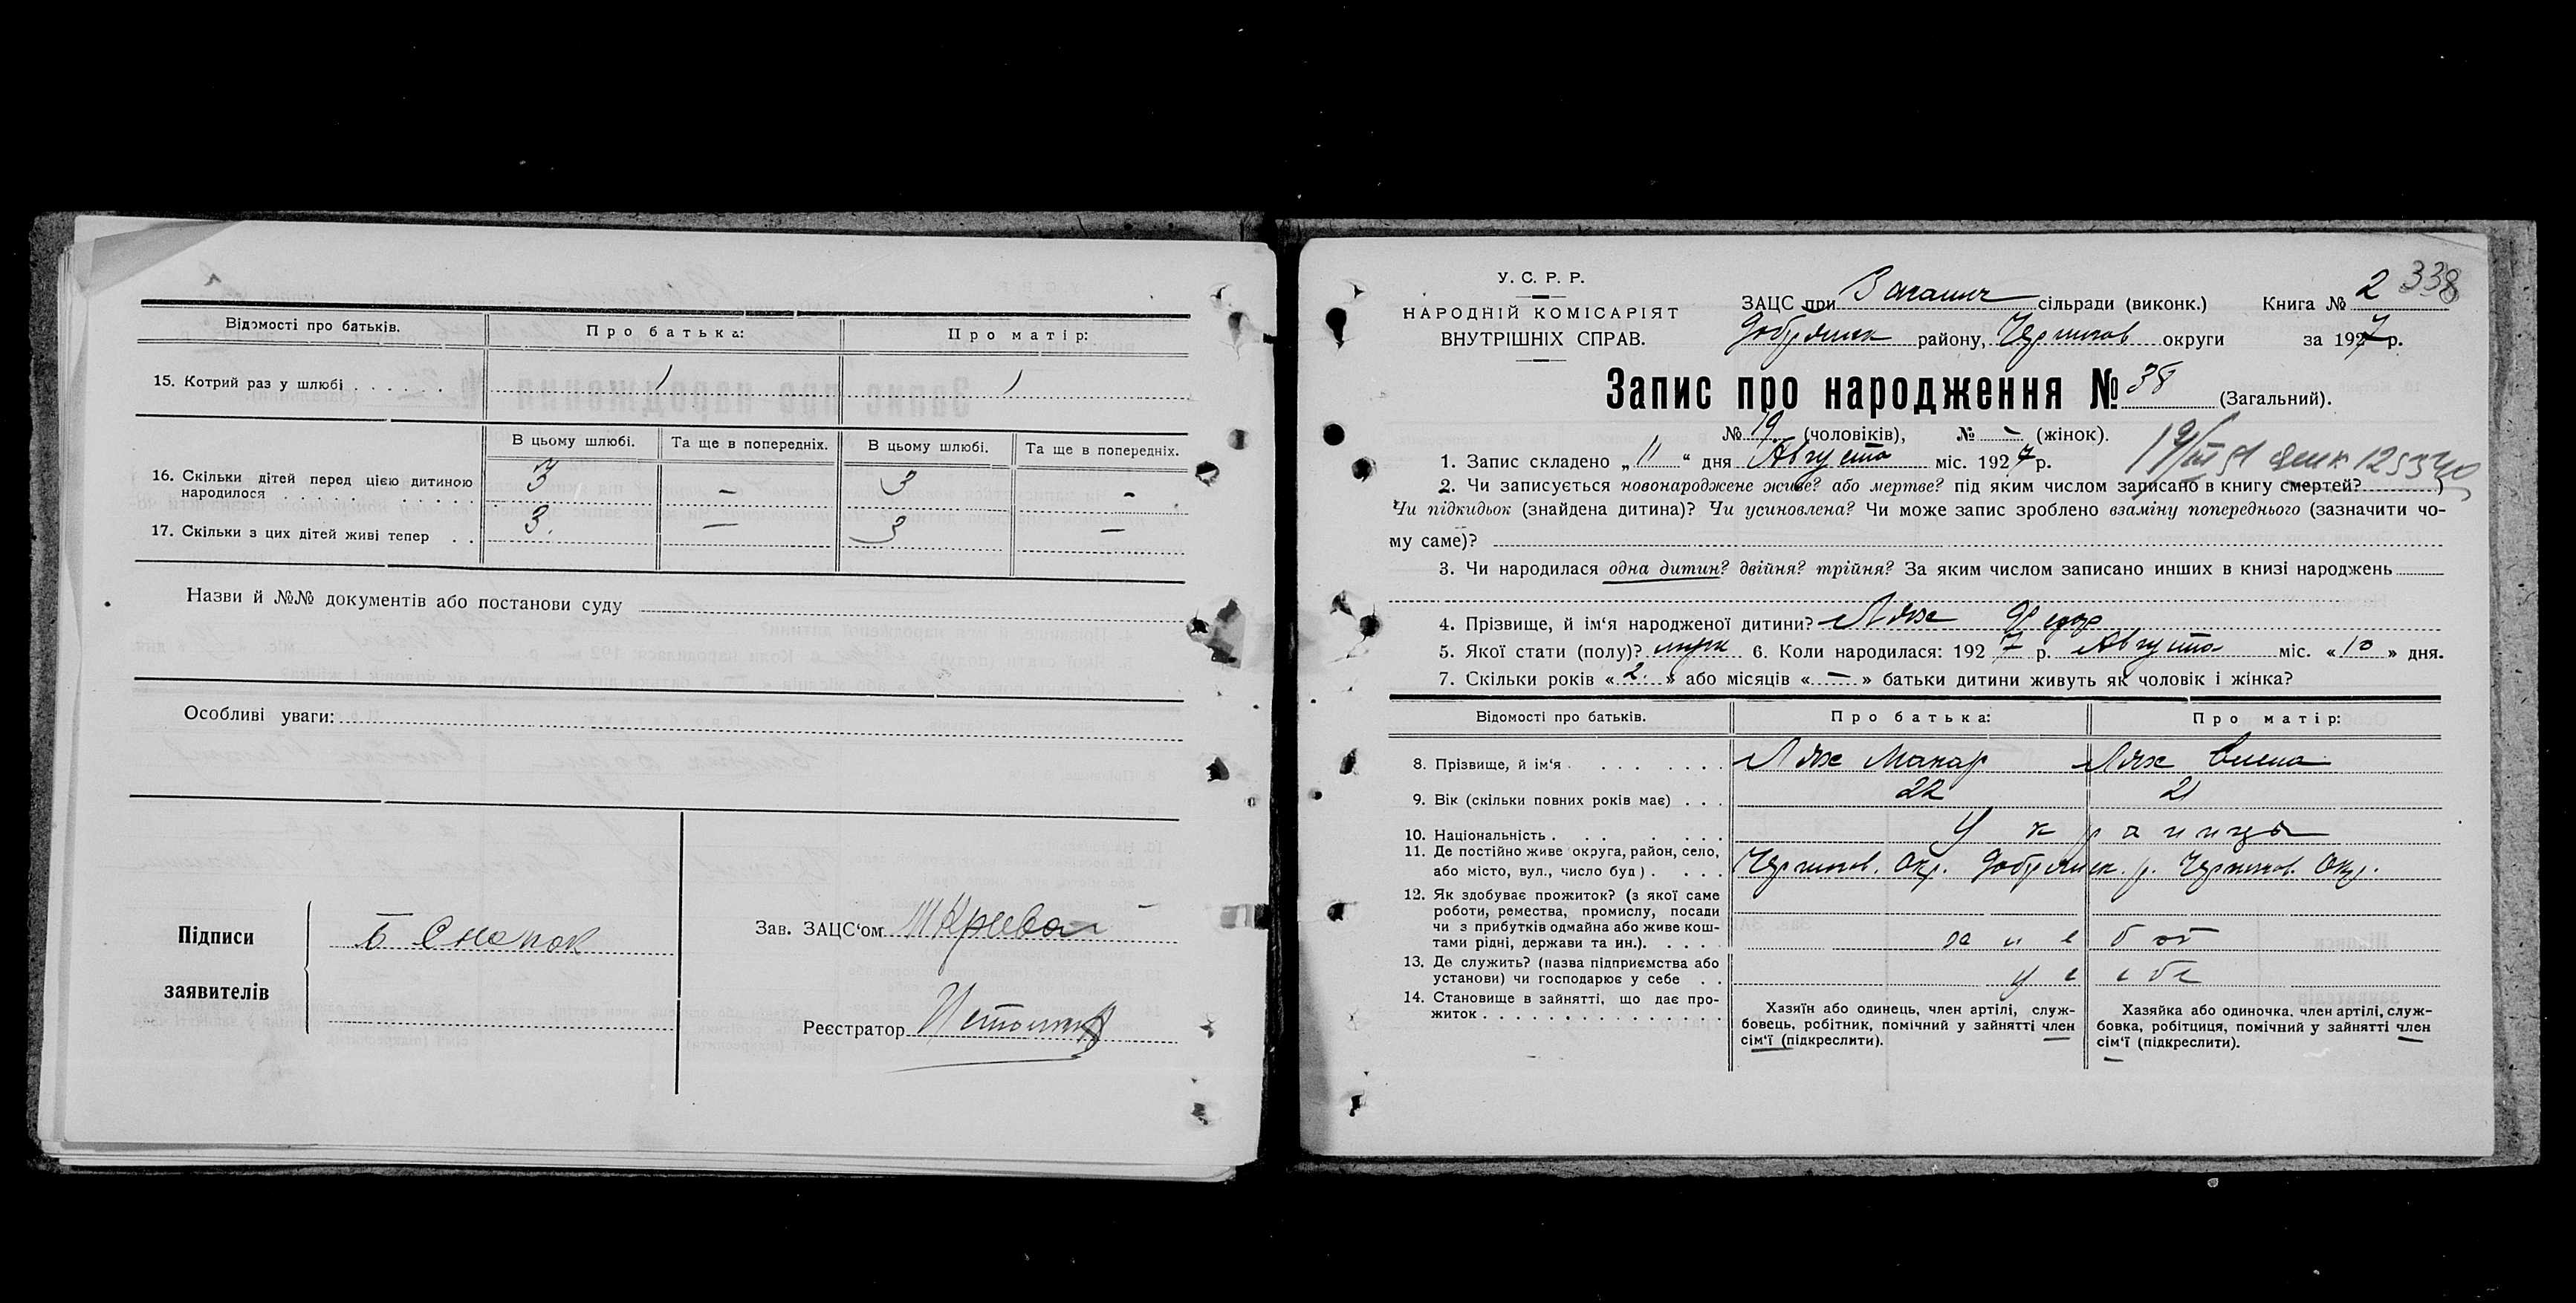 Відомості про батьків. Про батька: Про матір:
15. Котрий раз у шлюбі . . . . . . 1 1
В цьому шлюбі. Та ще в попередніх. В цьому шлюбі. Та ще в попередніх.
16. Скільки дітей перед цією дитиною народилося . . . . . 3 – 3 –
17. Скільки з цих дітей живі тепер . . 3. – 3 –
Назви й №№ документів або постанови суду
Особливі уваги:
Підписи
заявителів
Зав. ЗАЦС‘ом
Реєстратор
У. С. Р. Р.
НАРОДНІЙ КОМІСАРІЯТ
ВНУТРІШНІХ СПРАВ.
ЗАЦС при сільради (виконк.) Книга № 2 338
Добрянск району, Чернигов округи за 1927 р.
Запис про народження № 38 (Загальний).
№ 19 (чоловіків), № – (жінок).
1. Запис складено „ 11 “ дня Августа міс. 1927 р.
2. Чи записується новонароджене живе? або мертве? під яким числом записано в книгу смертей? )
Чи підкидьок (знайдена дитина)? Чи усиновлена? Чи може запис зроблено взаміну попереднього (зазначити чо-
му саме)?
3. Чи народилася одна дитин? двійня? трійня? За яким числом записано инших в книзі народжень
4. Прізвище, й ім‘я народженої дитини? Лях Федор
5. Якої стати (полу)? муж 6. Коли народилася: 1927 р. Августа міс. « 10 » дня.
7. Скільки років « 2. » або місяців « – » батьки дитини живуть як чоловік і жінка?
Відомості про батьків. Про батька: Про матір:
8. Прізвище, й ім‘я . . . . . . Лях Макар Лях Елена
9. Вік (скільки повних років має) . . . 22 21
10. Національність . . . . . . . Украинцы
11. Де постійно живе округа, район, село,
або місто, вул., число буд) . . . . Чернигов. Окр. Добрянск. р. Чернигов. Окр.
12. Як здобуває прожиток? (з якої саме
роботи, ремества, промислу, посади
чи з прибутків одмайна або живе кош-
тами рідні, держави та ин.). . . . . хлебоб
13. Де служить? (назва підприємства або
установи) чи господарює у себе . . у себе
14. Становище в зайнятті, що дає про-
житок . . . . . . . . . . . . . .
Хазяїн або одинець, член артілі, служ-
бовець, робітник, помічний у зайнятті член
сім‘ї (підкреслити).
Хазяйка або одиночка, член артілі, служ-
бовка, робітциця, помічний у зайнятті член
сім‘ї (підкреслити).